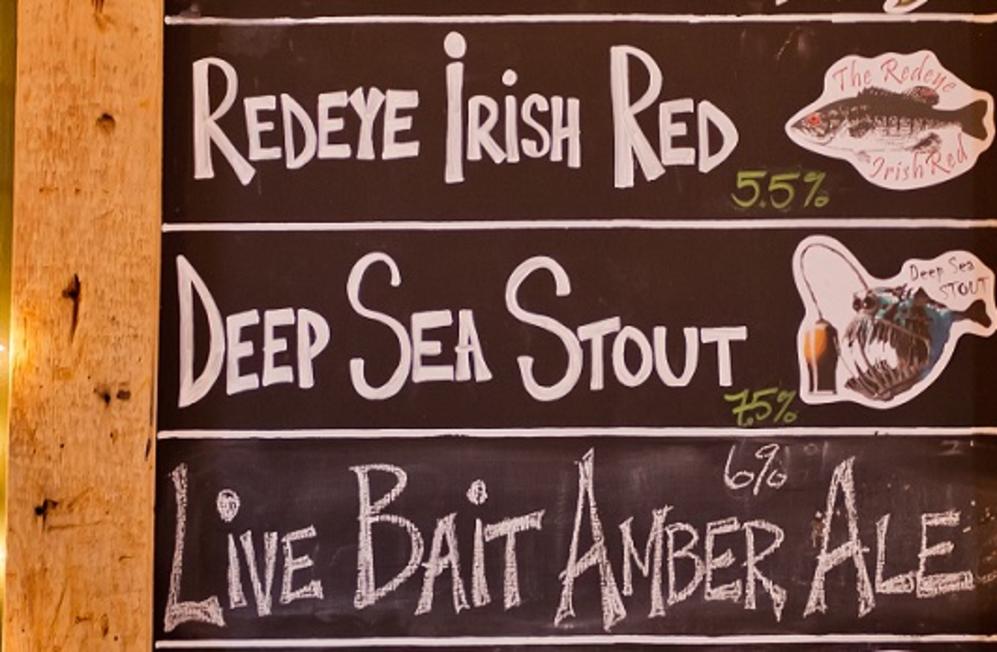 REDEYE IRISH RED
5.5%
The Redeye
Irish Red
DEEP SEA STOUT
7.5%
Deep Sea
STOUT
6%
LIVE BAIT AMBER ALE